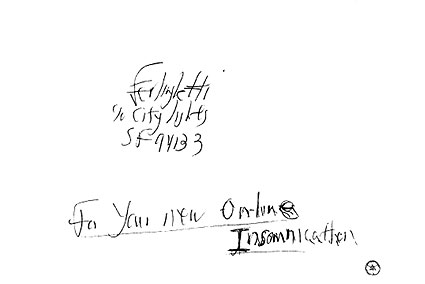 Ferlinghetti
c/o City Lights
SF 94133
For Your new Online
Insomnicathon